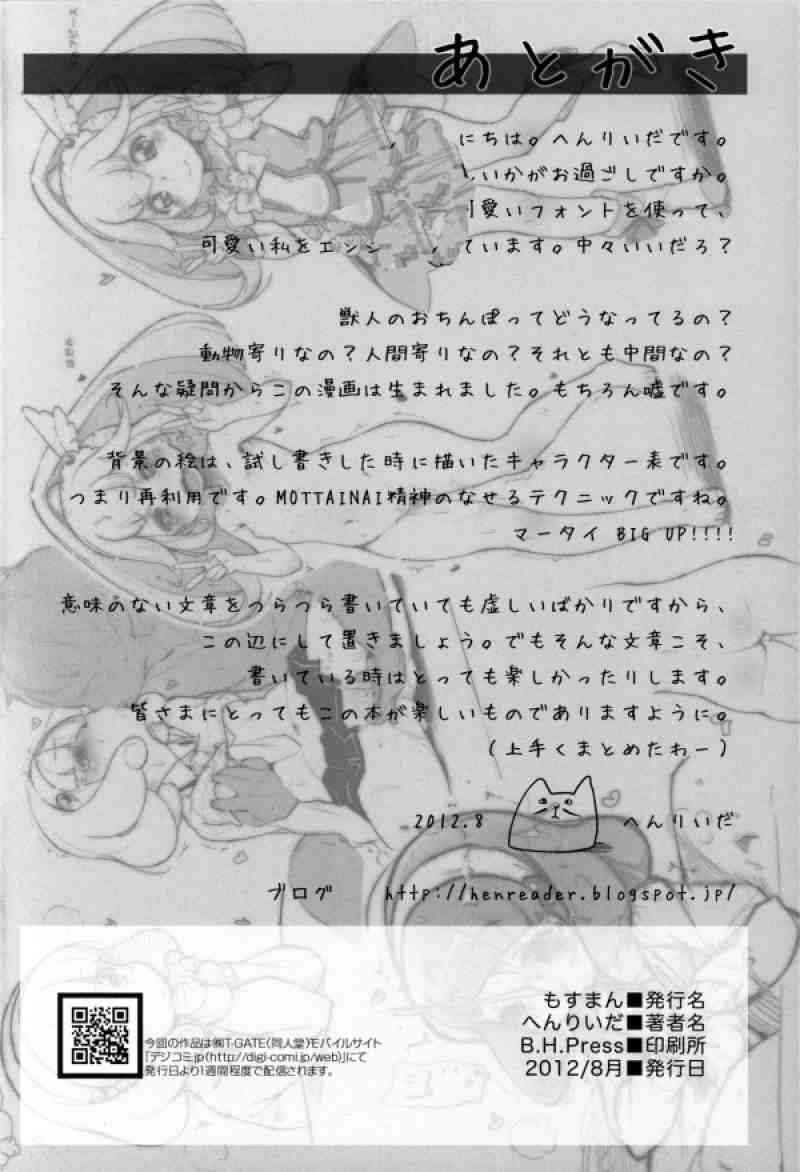 あとがき
にちは。へんりいだです。
いかがお過ごしですか。
愛いフォントを使って、
可愛い私をエンジ ています。中々いいだろ?
獣人のおちんぽってどうなってるの?
動物寄りなの?人間寄りなの?それとも中間なの?
そんな疑問からこの漫画は生まれました。もちろん嘘です。
背景の絵は、試し書きした時に描いたキャラクター表です。
つまり再利用です。MOTTAINAI精神のなせるテクニックですね。
マータイ BIG UP!!!!
意味のない文章をつらつら書いていても虚しいばかりですから、
この辺にして置きましょう。でもそんな文章こそ、
書いている時はとっても楽しかったりします。
皆さまにとってもこの本が楽しいものでありますように。
(上手くまとめたわー)
2012.8 へんりいだ
ブログ http://henreader.blogspot.jp/
今回の作品は㈱T-GATE(同人堂)モバイルサイト
「デジコミ.jp(http://digi-comi.jp/web)」にて
発行日より1週間程度で配信されます。
もすまん■発行名
へんりいだ■著者名
B.H.Press■印刷所
2012/8月■発行日